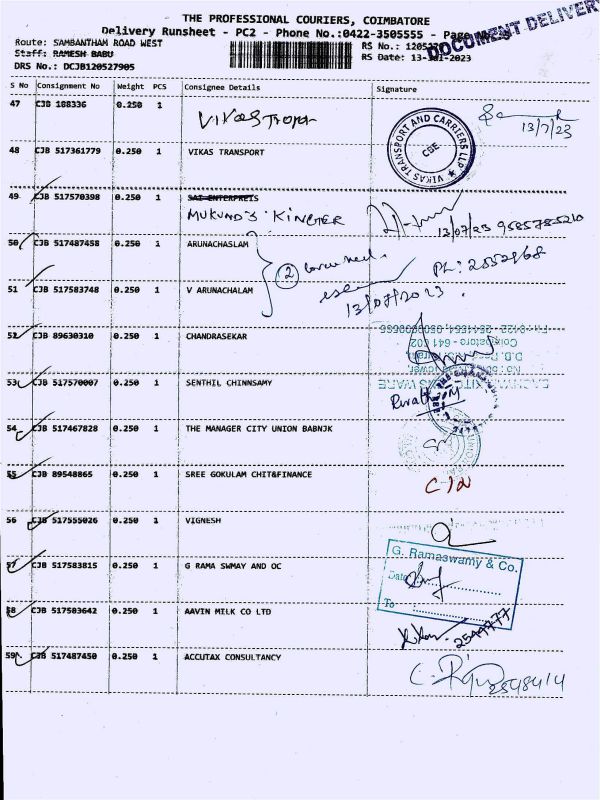 THE PROFESSIONAL COURIERS, COIMBATORE
Delivery Runsheet - PC2 - Phone No.:0422-3505555 - Page
DOCUMENT DELIVERY
Route: SAMBANTHAM ROAD WEST
Staff: RAMESH BABU
DRS No.: DCJB120527905
RS No.:
RS Date: 13-Jul-2023
S No Consignment No Weight PCS Consignee Details Signature
47 CJB 188336 0.250 1 Vikas Tropor
13/7/23
VIKAS TRANSPORT AND CARRIERS LLP
CBE
48 CJB 517361779 0.250 1 VIKAS TRANSPORT
49 CJB 517570398 0.250 1 SAI ENTERPREIS
MUKUND'S KINGTER
13/07/23 9585785210
50 CJB 517487458 0.250 1 ARUNACHASLAM
2
Ph: 2552168
51 CJB 517583748 0.250 1 V ARUNACHALAM
13/07/2023.
52 CJB 89630310 0.250 1 CHANDRASEKAR
Coimbatore - 641 002
53 CJB 517570007 0.250 1 SENTHIL CHINNSAMY
54 CJB 517467828 0.250 1 THE MANAGER CITY UNION BABNJK
55 CJB 89548865 0.250 1 SREE GOKULAM CHIT&FINANCE
56 CJB 517555026 0.250 1 VIGNESH
57 CJB 517583815 0.250 1 G RAMA SWMAY AND OC
G. Ramaswamy & Co.
Date
To
58 CJB 517583642 0.250 1 AAVIN MILK CO LTD
2544777
59 CJB 517487450 0.250 1 ACCUTAX CONSULTANCY
2548414